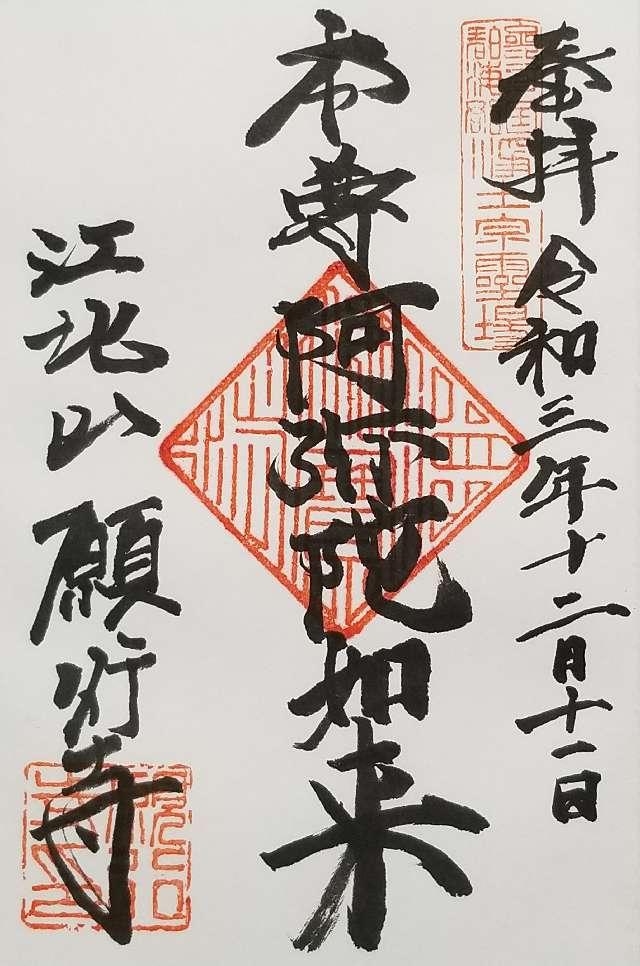 奉拝 令和三年十二月十一日
本尊 阿弥陀如来
江北山 願行寺